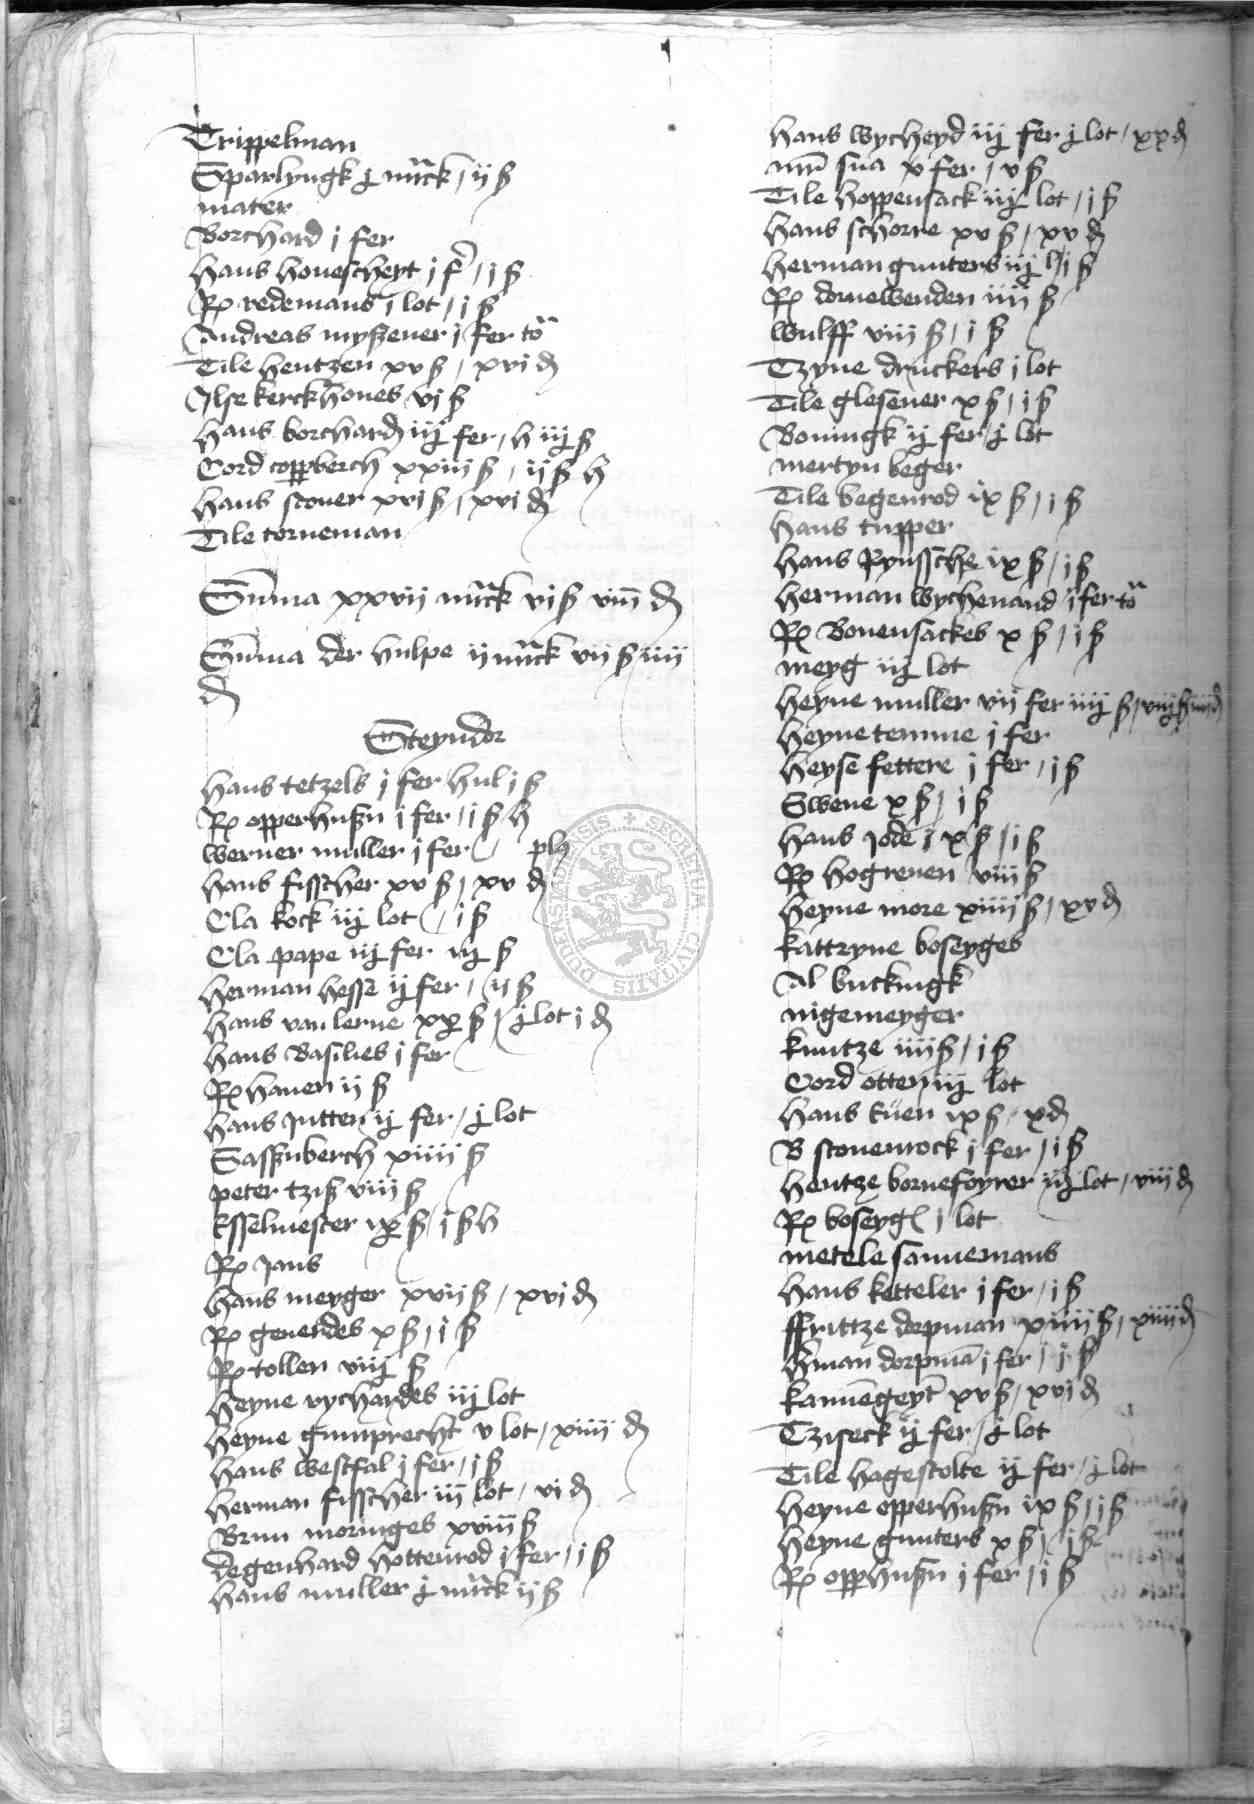 Trippelman
Sparlyngk j marck / ij ß
mater
Borchard j fer
Hans houescheyt j f / j ß
Re redemans j lot / j ß
Andreas myßener j fer
Tile hentzen xv ß / xvi d
Ilse kerckhoues vj ß
Hans borchard iij fer / h iij ß
Cord coppberch xxiiij ß / ij ß h
Hans stouer xvj ß / xvj d
Tile torneman
Summa xxvij marck vi ß viij d
Summa der hulpe ij marck vij ß iiij
d
Steyndor
Hans tetzels j fer hul j ß
Re opperhußn j fer / j ß h
Werner muller j fer
Hans fisscher xv ß / xv d
Cla kock iij lot / j ß
Cla pape iij fer iij ß
Herman hesse ij fer / ij ß
Hans van lerne xx ß / j lot j d
Hans Basilies j fer
Re hauen ij ß
Hans Jutten ij fer / j lot
Saßnberch xiiij ß
peter tziß viij ß
Esselmester ix ß / j ß h
Re Jans
Hans meyger xvij ß / xvj d
Re geuerdes x ß / j ß
Re tollen viij ß
Heyne rychardes iij lot
Heyne gumprecht v lot / xiiij d
Hans westfal j fer / j ß
Herman fisscher iij lot / vi d
Brun moringes xviij ß
degenhard hottenrod j fer / j ß
Hans muller j marck ij ß
Hans wycheyd iij fer j lot / xx d
sua x fer / v ß
Tile hoppensack iij lot / j ß
Hans schorre xv ß / xv d
Herman gunters iij l / j ß
Re dornewenden iiij ß
Wulff viij ß / j ß
Tzyne druckers j lot
Tile glesener x ß / j ß
Boningk ij fer / j lot
mertyn beger
Tile begenrod ix ß / j ß
Hans tupper
Hans Rynssche ix ß / j ß
Herman wychenand j fer
Re Bouensackes x ß / j ß
meyg iij lot
Heyne muller vij fer iiij ß
Heyne temme j fer
Heyse fettere j fer / j ß
Swene x ß / j ß
Hans Jode x ß / j ß
Re hogreuen viij ß
Heyne more xiiij ß / xv d
kattryne boseyges
Al buckingk
nigemeyger
kuntze iiij ß / j ß
Cord otten iij lot
Hans kuen ix ß / x d
B stouenrock j fer / j ß
Hentze bornefoyrer iij lot / viij d
Re boseyg j lot
metele sannemans
Hans ketteler j fer / j ß
ffrittze dorpman xiiij ß / xiiij d
Herman dorpman j fer / j ß
kannegeyt xv ß / xvi d
Tziseck ij fer / j lot
Tile hagestolte ij fer / j lot
Heyne opperhußn ix ß / j ß
Heyne gunters x ß / j ß
Re opphußn j fer / j ß
SECRETUM CIVITATIS DUDERSTADENSIS